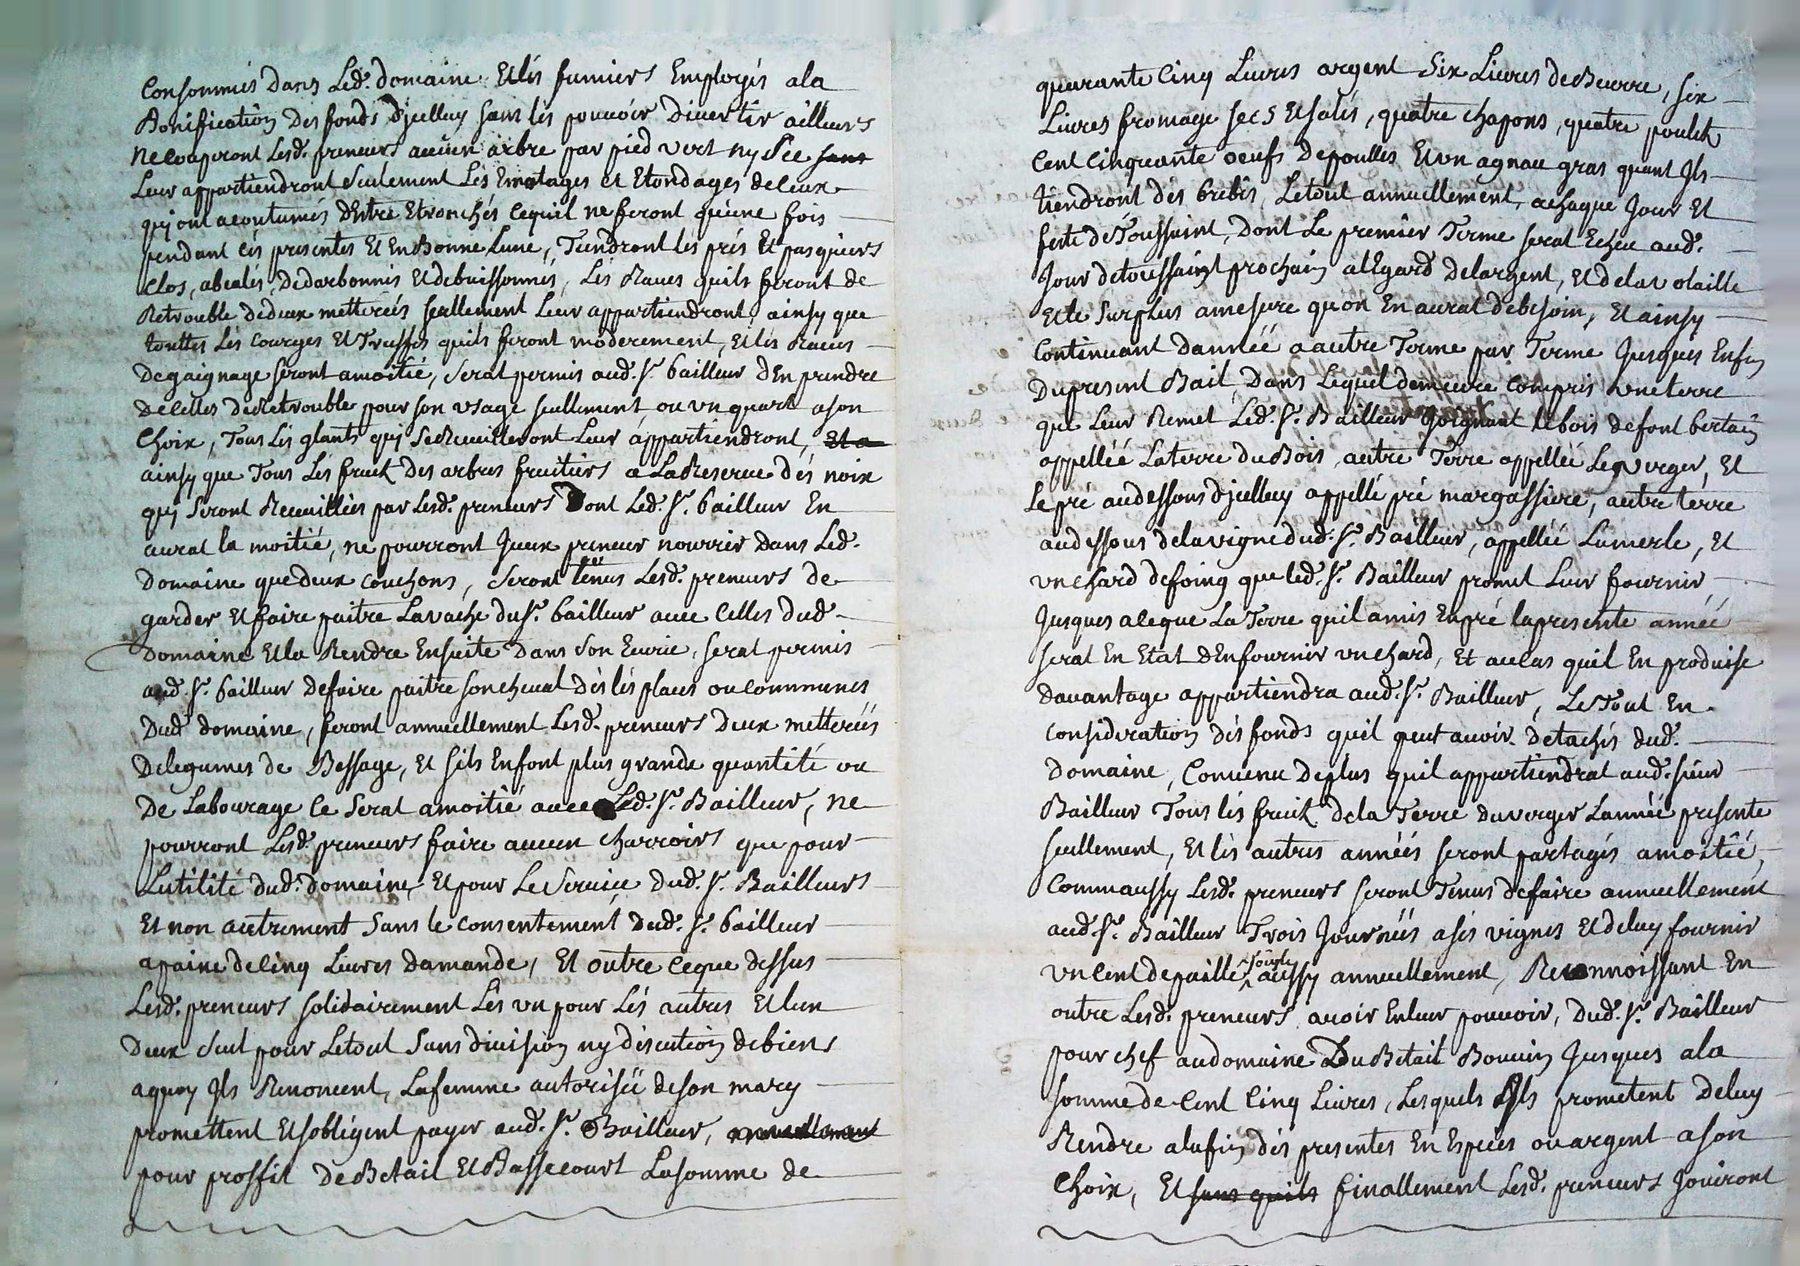 Consommés dans Led.t domaine Et lés fumiers Employés a la
Bonification Des fonds Djcelluy sans lés pouvoir Divertir ailleurs
ne Couperont Lesd. preneurs aucun arbre par pied vert ny Sec sans
Leur appartiendront seulement Les Emotages et Etondages de Ceux
quj ont acoutumés dEstre Etronchés Cequil ne feront quune fois
pendant Cés presentes Et En Bonne Lune, Tiendront les prés Et pasquiers
Clos, abealés, Dedarbonnés Et debuissonnés, Lés Raves quils feront de
Retrouble de deux metterées seullement Leur appartiendront, ainsy que
touttes Les Courges Et Truffes quils feront moderement, Et lés Raves
De gaignage seront amoitié, Serat permis aud. Sr. bailleur dEn prendre
de Celles de Retrouble pour son usage seullement ou un quart a son
Choix, Tous Lés glants quj Se Recuilleront Leur appartiendront, Et a
ainsy que Tous Les fruit Des arbres fruitiers a La Reserve dés noix
quj Seront Recuillies par Lesd. preneurs Dont Led. Sr. bailleur En
aurat la moitié, ne pourront Jceux preneur nourrir dans Led.
Domaine que deux Couchons, Seront tenus Lesd. preneurs de
garder Et faire paitre La vache du Sr. bailleur avec Celles dud.
Domaine Et la Rendre Ensuite dans son Ecurie, Serat permis
aud. Sr. bailleur de faire paitre son cheval dés lés places ou Communes
Dud. domaine, feront annuellement Lesd. preneurs Deux metterées
De legumes de Bessage, Et sils En font plus grande quantité ou
De Labourage Ce Serat amoitié avec Led. Sr. Bailleur, ne
pourront Lesd. preneurs faire aucun Charroirs que pour
Lutilité dud. domaine, Et pour Le Service dud. Sr. Bailleurs
Et non autrement Sans le Consentement dud. Sr. bailleur
apaine de Cinq Livres damande, Et outre Ceque dessus
Lesd. preneurs solidairement Lés un pour Lés autres Et lun
Deux Seul pour Letout Sans division ny discution de biens
a quoy Jls Renoncent, La femme autorisée de son mary
promettent Et sobligent payer aud. Sr. Bailleur, annuellement
pour proffit De Betail Et Bassecourt La somme de
quarante Cinq Livres argent Six Livres de Beurre, six
Livres fromage secs Et salés, quatre chapons, quatre poulets
Cent Cinquante oeufs de poulles Et un agnau gras quant Jls
tiendront dés brebis, Le tout annuellement, a chaque Jour Et
feste de Toussaint, Dont Le premier Terme serat Echeu aud.
Jour de toussaint prochain a lEgard de largent, Et de la volaille
Et le Surplus a mesure quon En aurat de besoin, Et ainsy
Continuant dannée a autre Terme par Terme Jusques Enfin
Du present Bail, Dans Lequel demeure Compris une terre
que Leur Remet Led. Sr. Bailleur Joignant le bois de font bertain
appellée La terre du Bois, autre Terre appellée Le Verger, Et
Le pré au dessous djcelluy appellé pré margassiere, autre terre
au dessous de la vigne dud. Sr. Bailleur, appellée Lumerle, Et
un chard de foing que led. Sr. Bailleur promet Leur fournir
Jusques a Ceque La Terre quil a mis En pré la presente année
serat En Etat dEn fournir un chard, Et au Cas quil En produise
davantage appartiendra aud. Sr. Bailleur, Le Tout En
Consideration dés fonds quil peut avoir detachés dud.
domaine, Convenu de plus quil appartiendrat aud. sieur
Bailleur Tous lés fruit de la Terre du verger Lannée presente
seullement, Et lés autres années seront partagés amoitié,
Comm aussy Lesd. preneurs seront Tenus de faire annuellement
aud. Sr. Bailleur Trois Journées a sés vignes Et de luy fournir
un Cent de paille aussy annuellement, Reconnoissant En
outre Lesd. preneurs avoir En leur pouvoir, Dud. Sr. Bailleur
pour chef au domaine Du Betail Bouvin Jusques a la
somme de Cent Cinq Livres, Lesquels Jls prometent de luy
Rendre a la fin dés presentes En Especes ou argent a son
Choix, Et sans quils finallement Lesd. preneurs Joüiront